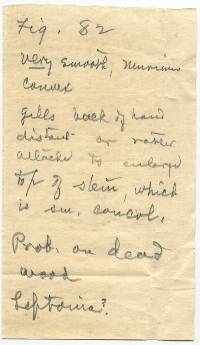 Fig. 82
very smooth,
convex
gills back of hand
distant or rather
attached to enlarge
top of stem, which
is sm. concol.
Prob. on dead
wood
Leptonia?